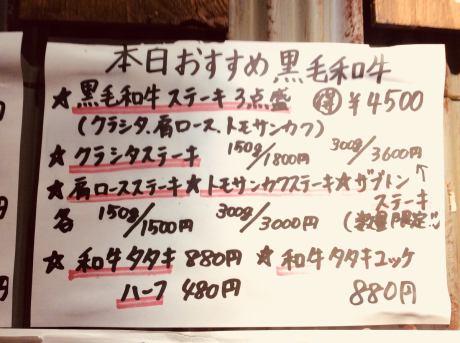 本日おすすめ黒毛和牛
★黒毛和牛ステーキ3点盛 得 ¥4500
(クラシタ.肩ロース.トモサンカク)
★クラシタステーキ 150g/1800円 300g/3600円
★肩ロースステーキ★トモサンカクステーキ★ザブトン
ステーキ
各 150g/1500円 300g/3000円 (数量限定!!
★和牛タタキ 880円 ★和牛タタキユッケ
ハーフ 480円 880円